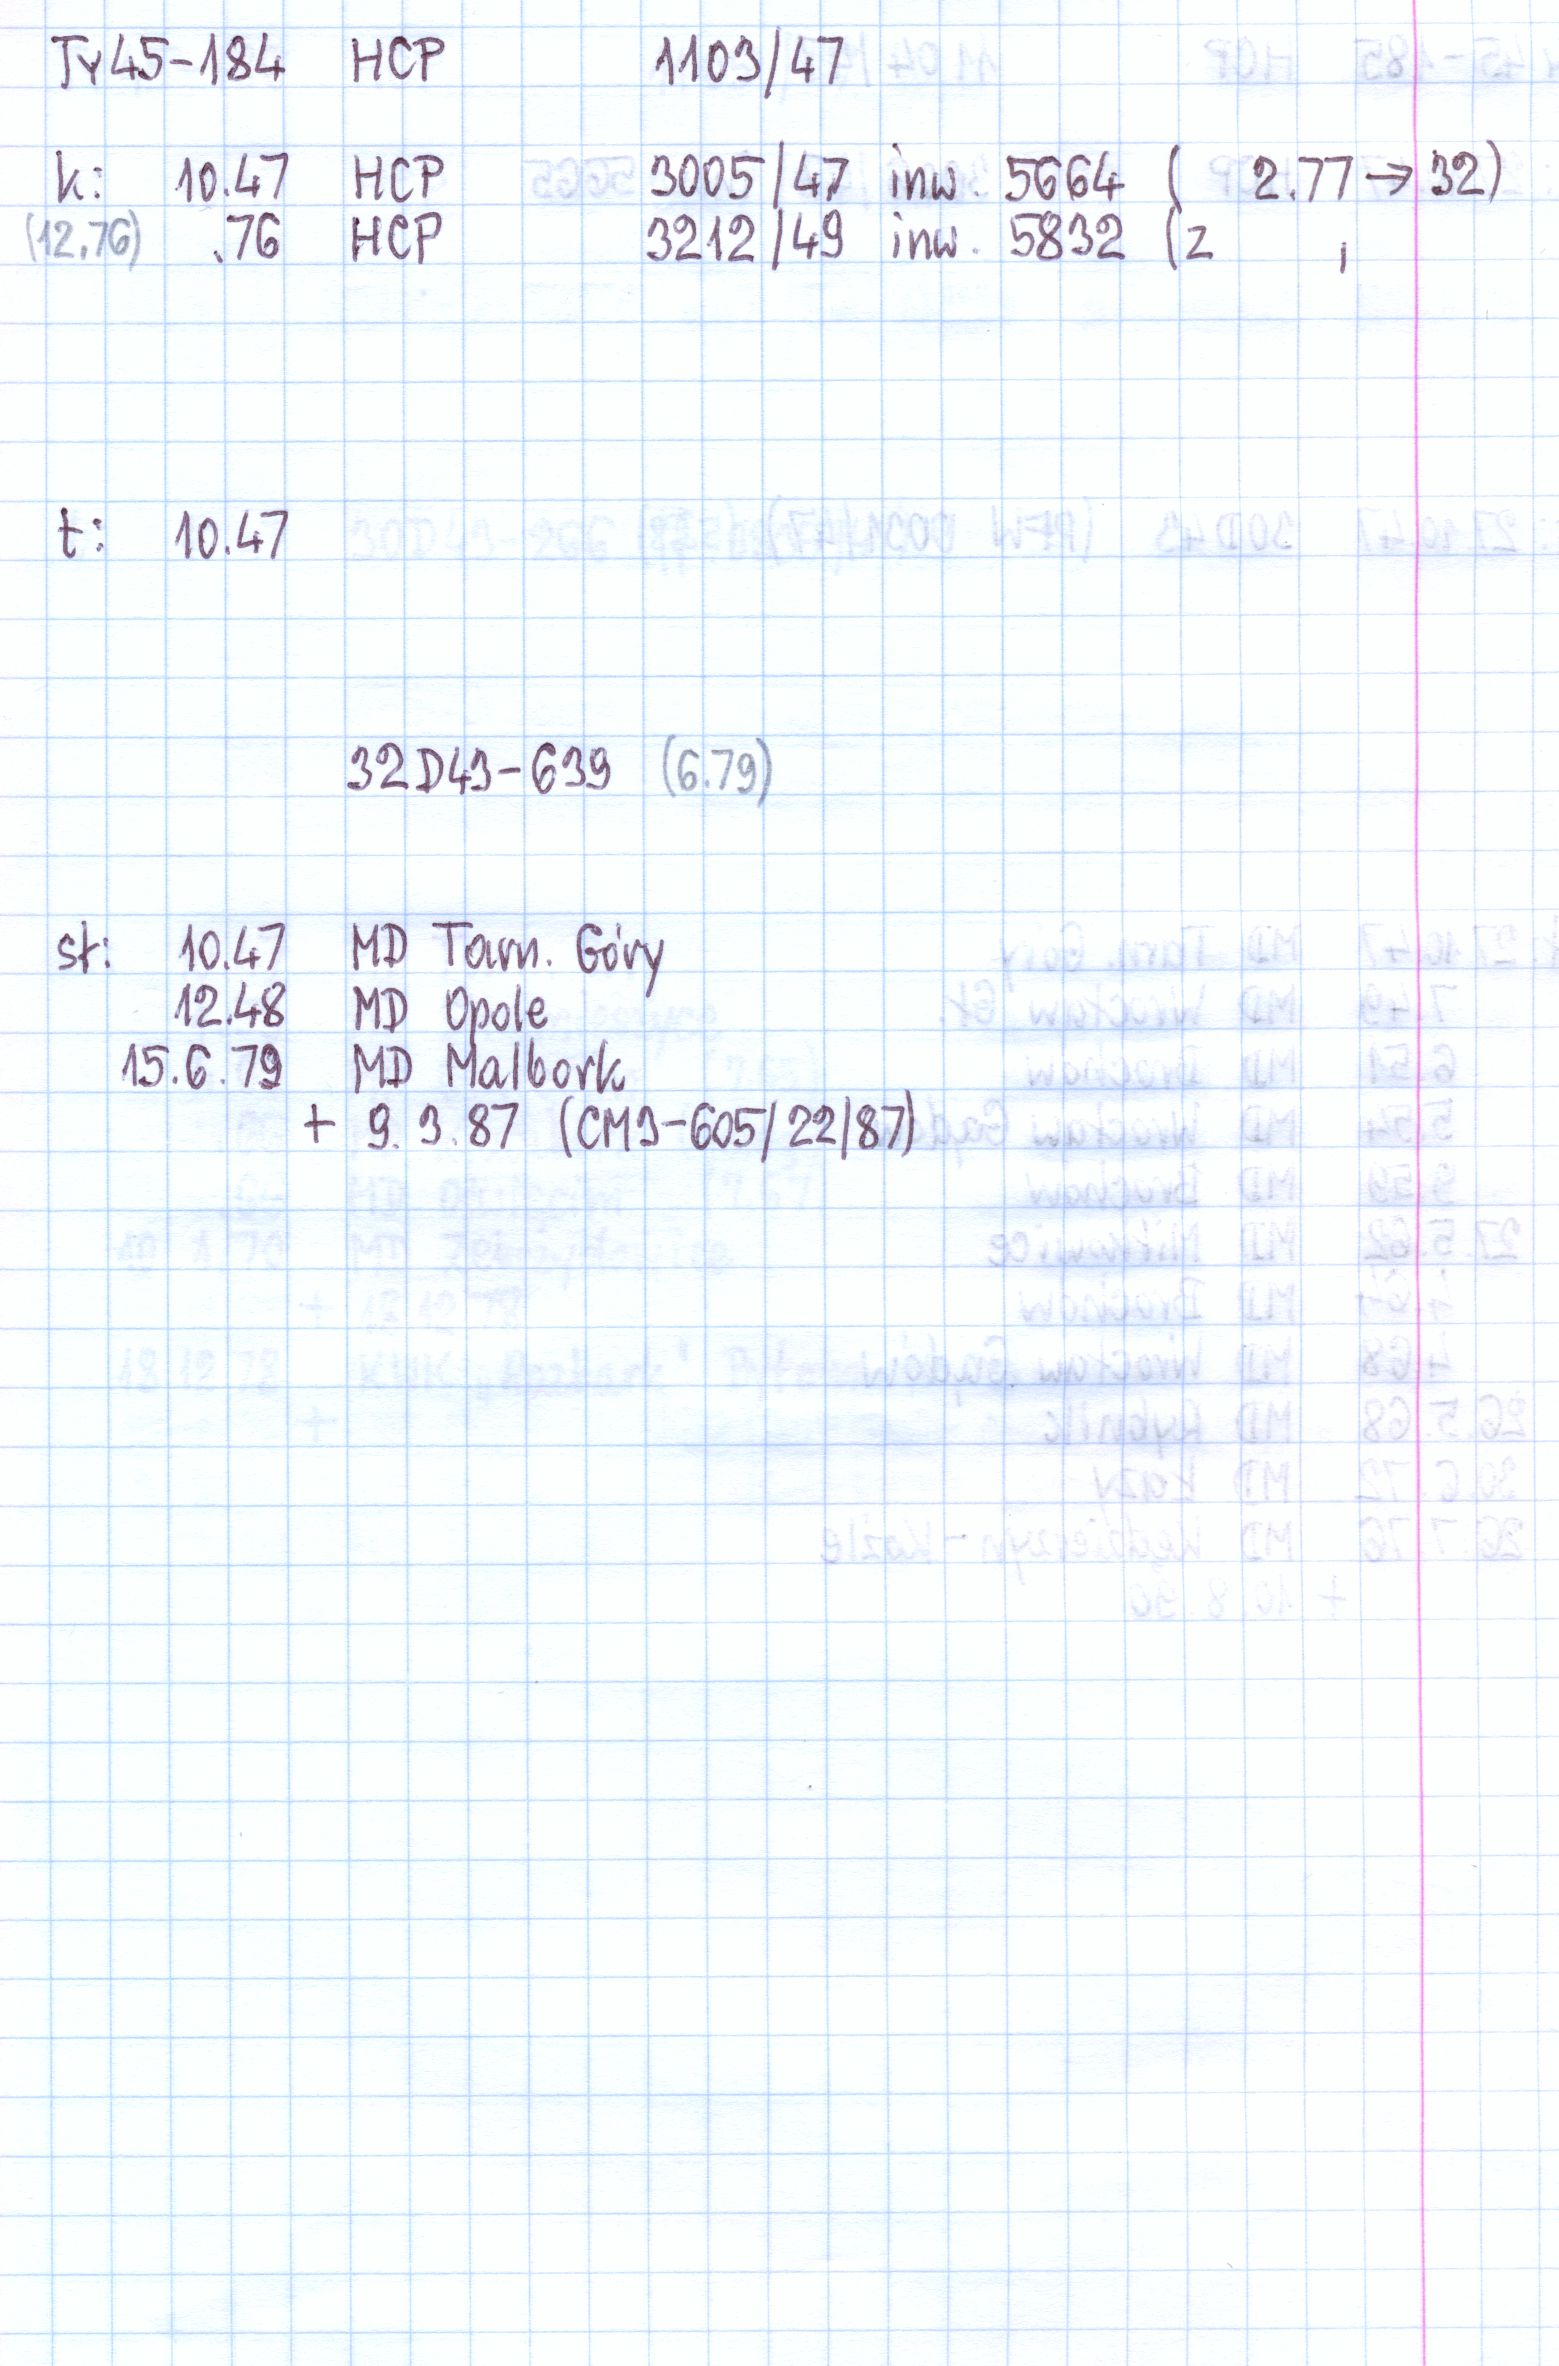 Ty45-184 HCP 1103/47
k: 10.47 HCP 3005/47 inw. 5664 ( 2.77 → 32)
(12.76) .76 HCP 3212/49 inw. 5832 (z ,
t: 10.47
32D43-639 (6.79)
st: 10.47 MD Tarn. Góry
12.48 MD Opole
15.6.79 MD Malbork
+ 9.3.87 (CM3-605/22/87)